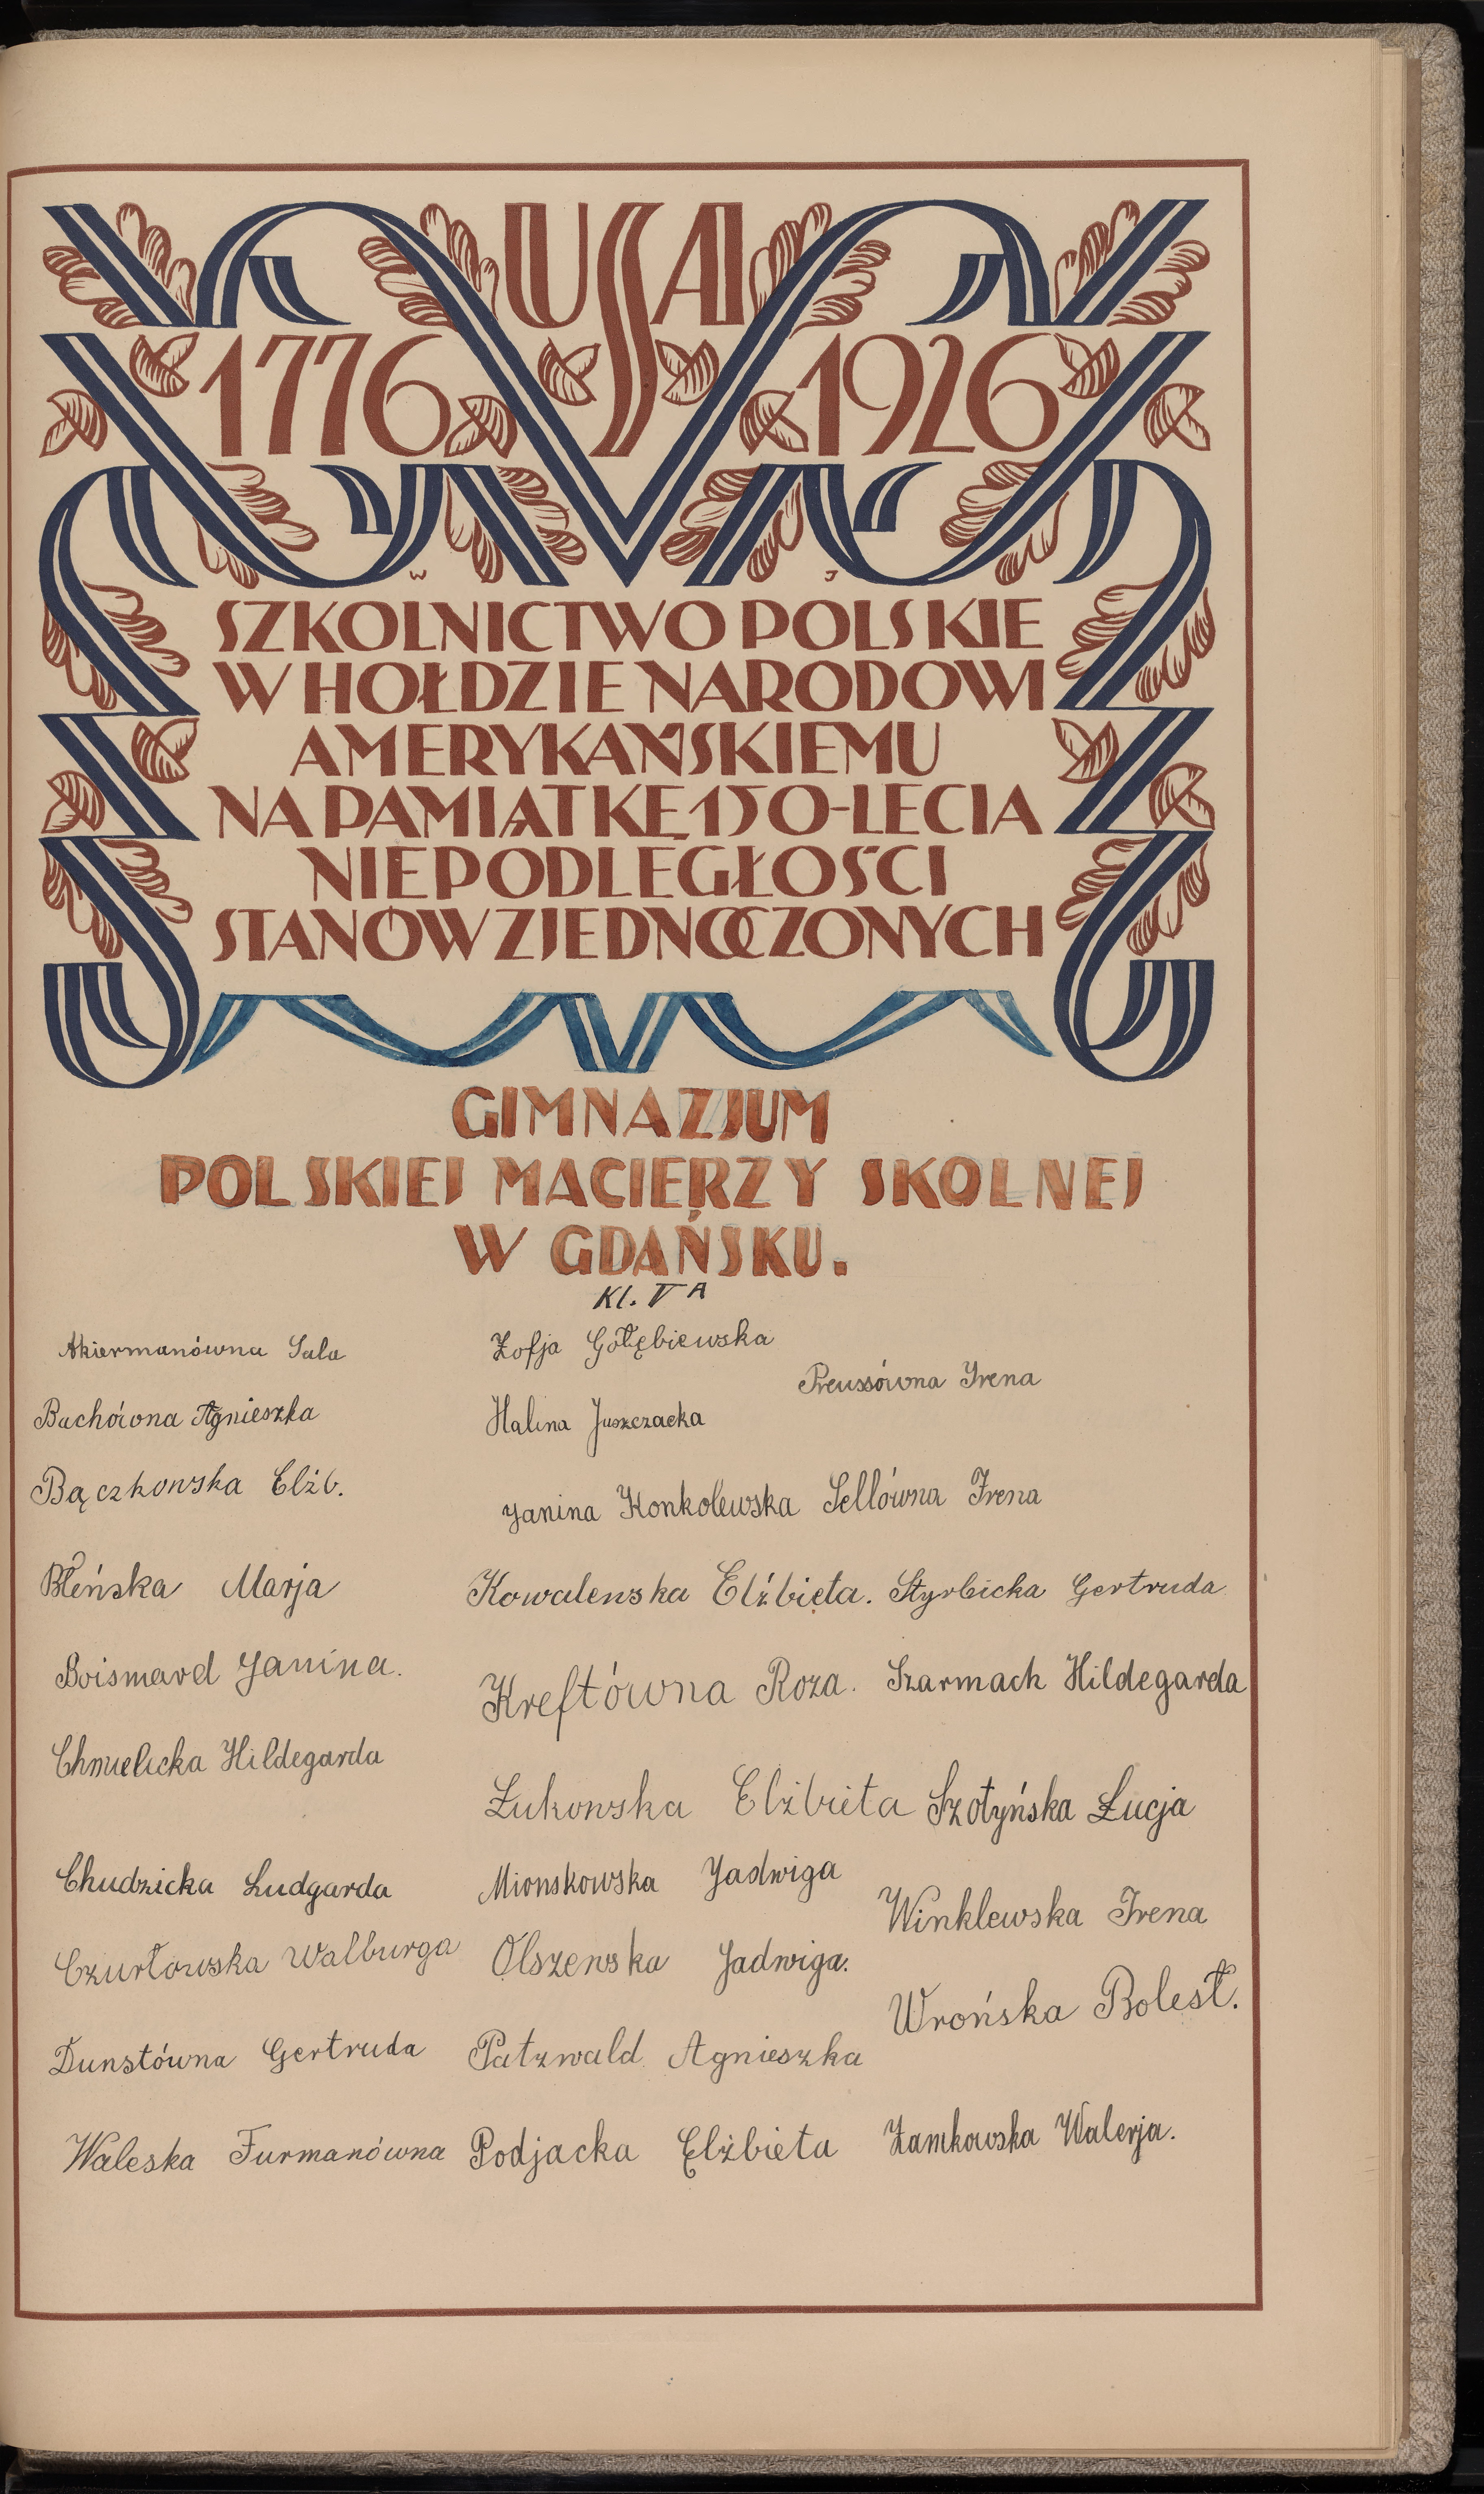 USA
1776 1926
W J
SZKOLNICTWO POLSKIE
W HOŁDZIE NARODOWI
AMERYKAŃSKIEMU
NA PAMIĄTKĘ 150-LECIA
NIEPODLEGŁOŚCI
STANÓW ZJEDNOCZONYCH
GIMNAZJUM
POLSKIEJ MACIERZY SKOLNEJ
W GDAŃSKU.
Kl. V A
Akiermanówna Sala
Bachówna Agnieszka
Bączkowska Elżb.
Błeńska Marja
Boismard Janina.
Chmielicka Hildegarda
Chudzicka Ludgarda
Czurłowska Walburga
Dunstówna Gertruda
Waleska Furmanówna
Zofja Gołębiewska
Halina Juszczacka
Janina Konkolewska
Kowalewska Elżbieta.
Kreftówna Roza.
Łukowska Elżbieta
Mionskowska Jadwiga
Olszewska Jadwiga.
Patzwald Agnieszka
Podjacka Elżbieta
Preussówna Irena
Sellówna Irena
Styrbicka Gertruda
Szarmach Hildegarda
Szotyńska Łucja
Winklewska Irena
Wrońska Bolesł.
Zamkowska Walerja.